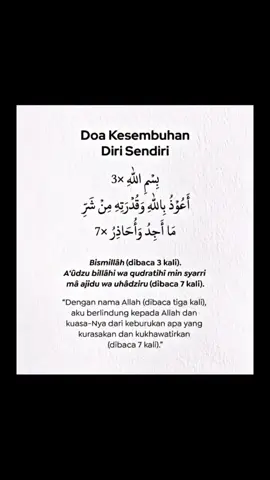 Doa Kesembuhan
Diri Sendiri
بِسْمِ اللهِ ×3
أَعُوْذُ بِاللهِ وَقُدْرَتِهِ مِنْ شَرِّ
مَا أَجِدُ وَأُحَاذِرُ ×7
Bismillâh (dibaca 3 kali).
A'ûdzu billâhi wa qudratihî min syarri
mâ ajidu wa uhâdziru (dibaca 7 kali).
"Dengan nama Allah (dibaca tiga kali),
aku berlindung kepada Allah dan
kuasa-Nya dari keburukan apa yang
kurasakan dan kukhawatirkan
(dibaca 7 kali)."